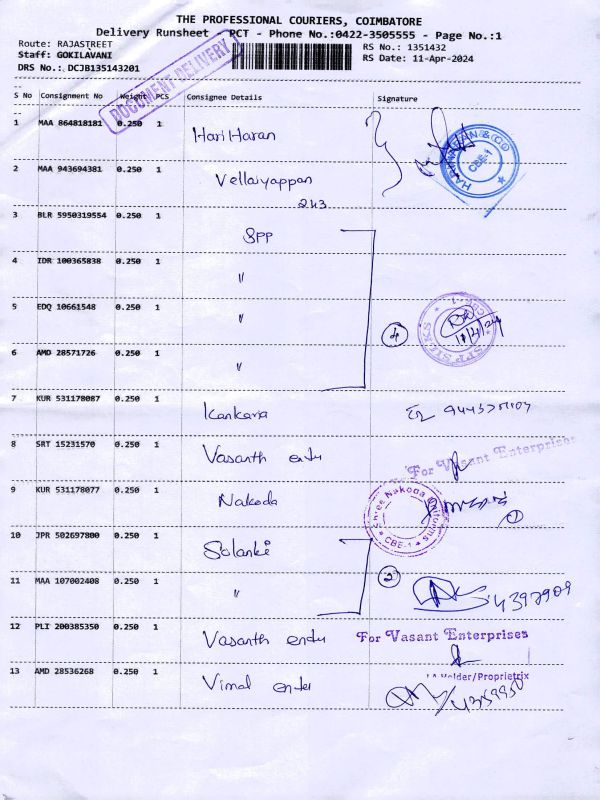 THE PROFESSIONAL COURIERS, COIMBATORE
Delivery Runsheet - PCT - Phone No.:0422-3505555 - Page No.:1
Route: RAJASTREET
Staff: GOKILAVANI
DRS No.: DCJB135143201
RS No.: 1351432
RS Date: 11-Apr-2024
DOCUMENT DELIVERY
S No Consignment No Weight PCS Consignee Details Signature
1 MAA 864818181 0.250 1 HariHaran
CBE-1
2 MAA 943694381 0.250 1 Vellaiyappan
243
3 BLR 5950319554 0.250 1 SPP
4 IDR 100365838 0.250 1 "
5 EDQ 10661548 0.250 1 "
4
SPP SILKS
11/4/24
6 AMD 28571726 0.250 1 "
7 KUR 531178087 0.250 1 Kankaria
8 SRT 15231570 0.250 1 Vasanth enter
For Vasant Enterprises
9 KUR 531178077 0.250 1 Nakoda
Shree Nakoda Uniforms
CBE-1
1
10 JPR 502697800 0.250 1 Solanki
11 MAA 107002408 0.250 1 "
2
4397909
12 PLI 200385350 0.250 1 Vasanth enter
For Vasant Enterprises
13 AMD 28536268 0.250 1 Vimal enter
Holder/Proprietrix
4359950